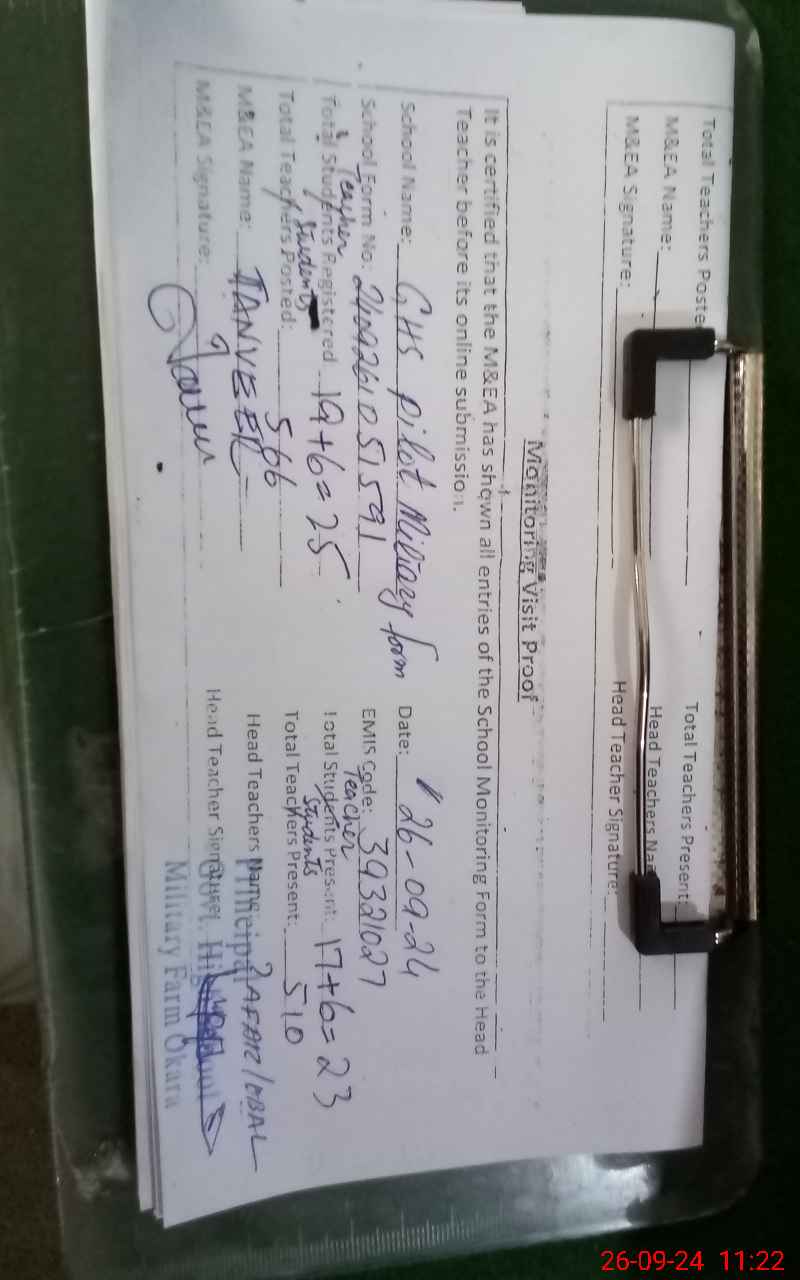 Total Teachers Poste Total Teachers Present:
M&EA Name: Head Teachers Nam
M&EA Signature: Head Teacher Signature:
Monitoring Visit Proof
It is certified that the M&EA has shown all entries of the School Monitoring Form to the Head
Teacher before its online submission.
School Name: GHS Pilot Military form Date: 26-09-24
School Form No: 2409261051591 EMIS Code: 39321027
Teacher Teacher
Total Students Registered 19+6=25 Total Students Present: 17+6=23
Students Students
Total Teachers Posted: 566 Total Teachers Present: 510
M&EA Name: TANVEER Head Teachers Name: ZAFAR IQBAL
Principal
M&EA Signature: Head Teacher Signature:
Military Farm Okara
26-09-24 11:22